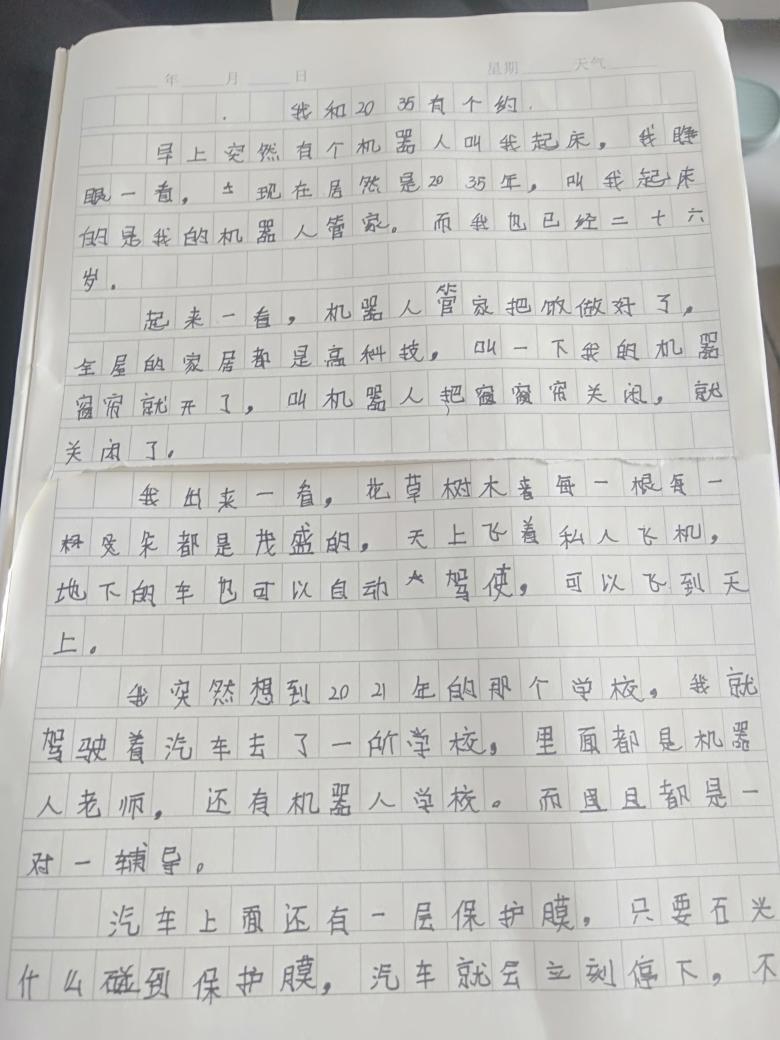 年 月 日 星期 天气
我和2035有个约.
早上突然有个机器人叫我起床，我睁
眼一看，现在居然是2035年，叫我起床
的是我的机器人管家。而我也已经二十六
岁.
起来一看，机器人管家把饭做好了，
全屋的家居都是高科技，叫一下我的机器
窗帘就开了，叫机器人把窗窗帘关闭，就
关闭了。
我出来一看，花草树木每一根每一
朵都是茂盛的，天上飞着私人飞机，
地下的车也可以自动驾使，可以飞到天
上。
我突然想到2021年的那个学校，我就
驾驶着汽车去了一所学校，里面都是机器
人老师，还有机器人学校。而且且都是一
对一辅导。
汽车上面还有一层保护膜，只要石光
什么碰到保护膜，汽车就会立刻停下，不